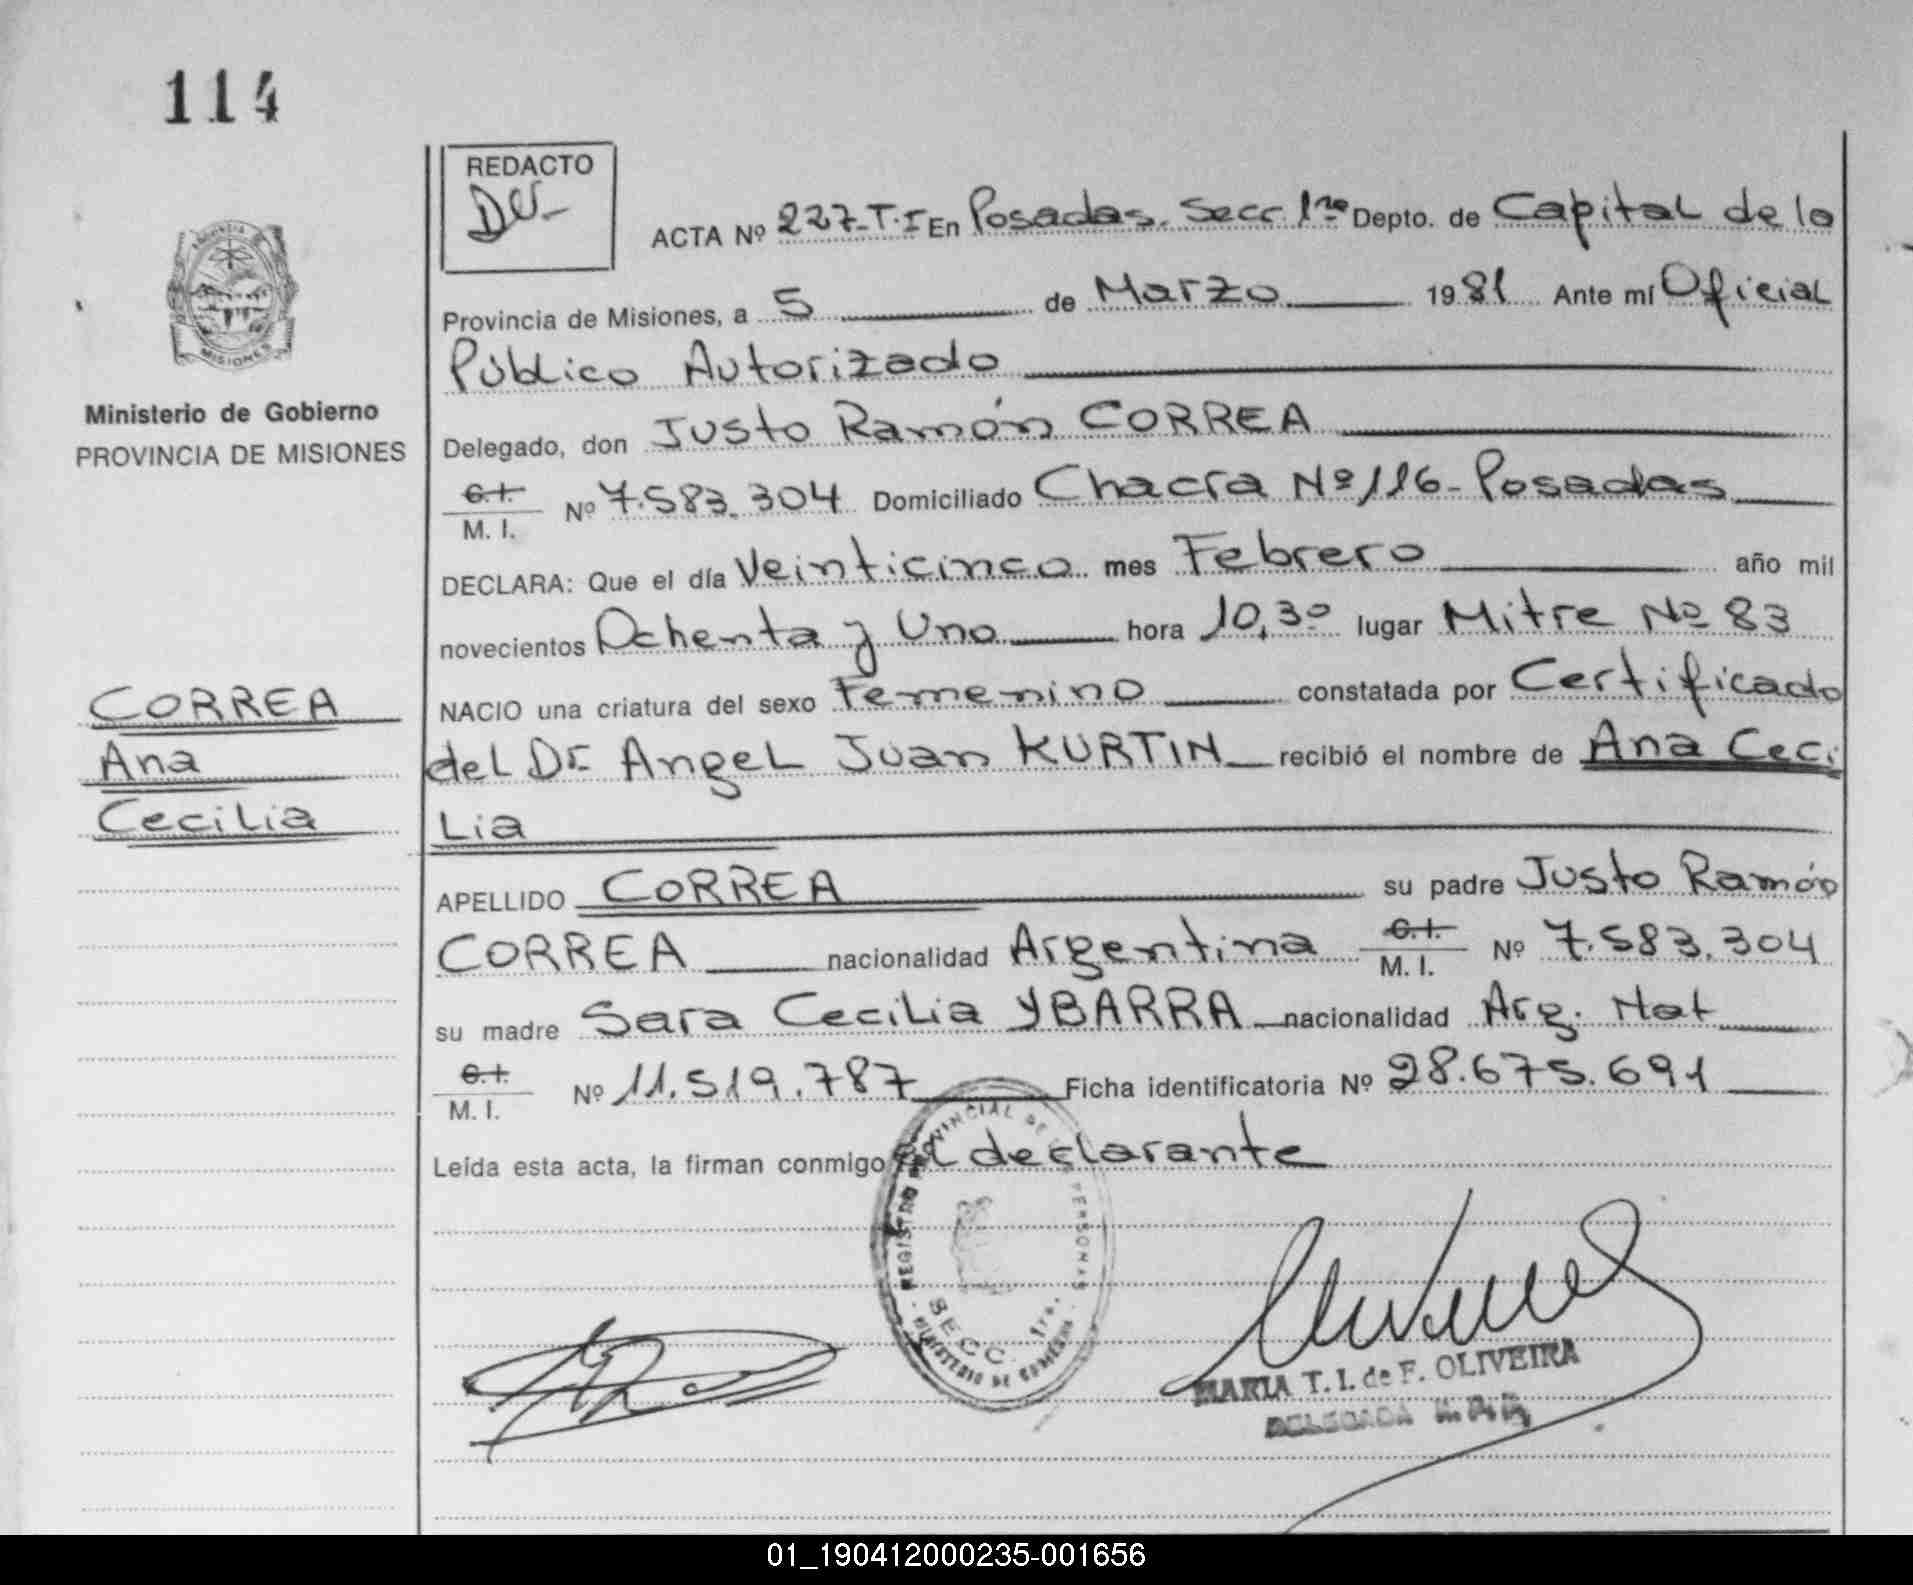 114
REDACTO
ACTA Nº 227-T-I En Posadas. Secc. 1ra Depto. de Capital de la
Provincia de Misiones, a 5 de Marzo 1981 Ante mí Oficial
Público Autorizado
Delegado, don Justo Ramón CORREA
C.I.
M. I. Nº 7.583.304 Domiciliado Chacra Nº 116-Posadas
DECLARA: Que el día Veinticinco mes Febrero año mil
novecientos Ochenta y Uno hora 10,30 lugar Mitre Nº 83
NACIO una criatura del sexo Femenino constatada por Certificado
del Dr. Angel Juan KURTIN recibió el nombre de Ana Ceci
Lia
APELLIDO CORREA su padre Justo Ramón
CORREA nacionalidad Argentina C.I. M. I. Nº 7.583.304
su madre Sara Cecilia YBARRA nacionalidad Arg. Nat
C.I.
M. I. Nº 11.519.787 Ficha identificatoria Nº 28.675.691
Leída esta acta, la firman conmigo el declarante
MISIONES
Ministerio de Gobierno
PROVINCIA DE MISIONES
CORREA
Ana
Cecilia
REGISTRO PROVINCIAL DE LAS PERSONAS
SECC. 1ra.
MINISTERIO DE GOBIERNO
MARIA T. I. de F. OLIVEIRA
DELEGADA
01_190412000235-001656